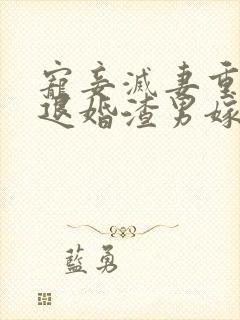 寵妾滅妻重
退婚渣男嫁
藍勇